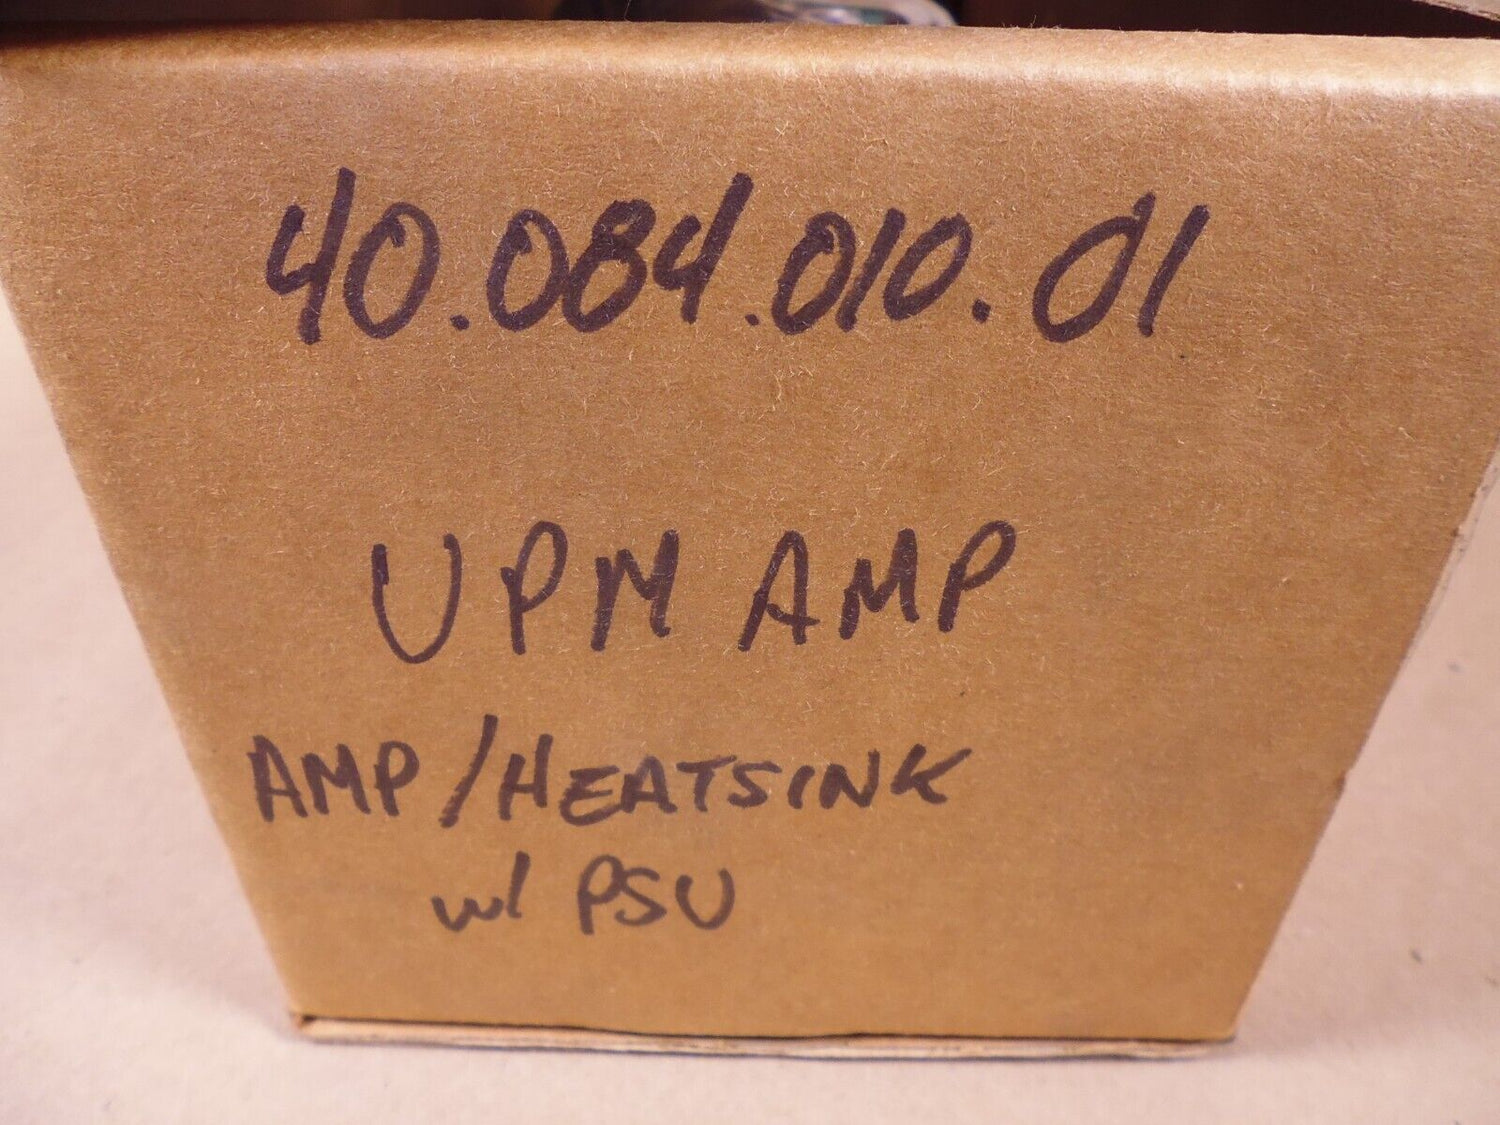 40.084.010.01
UPM AMP
AMP/HEATSINK
w/ PSU